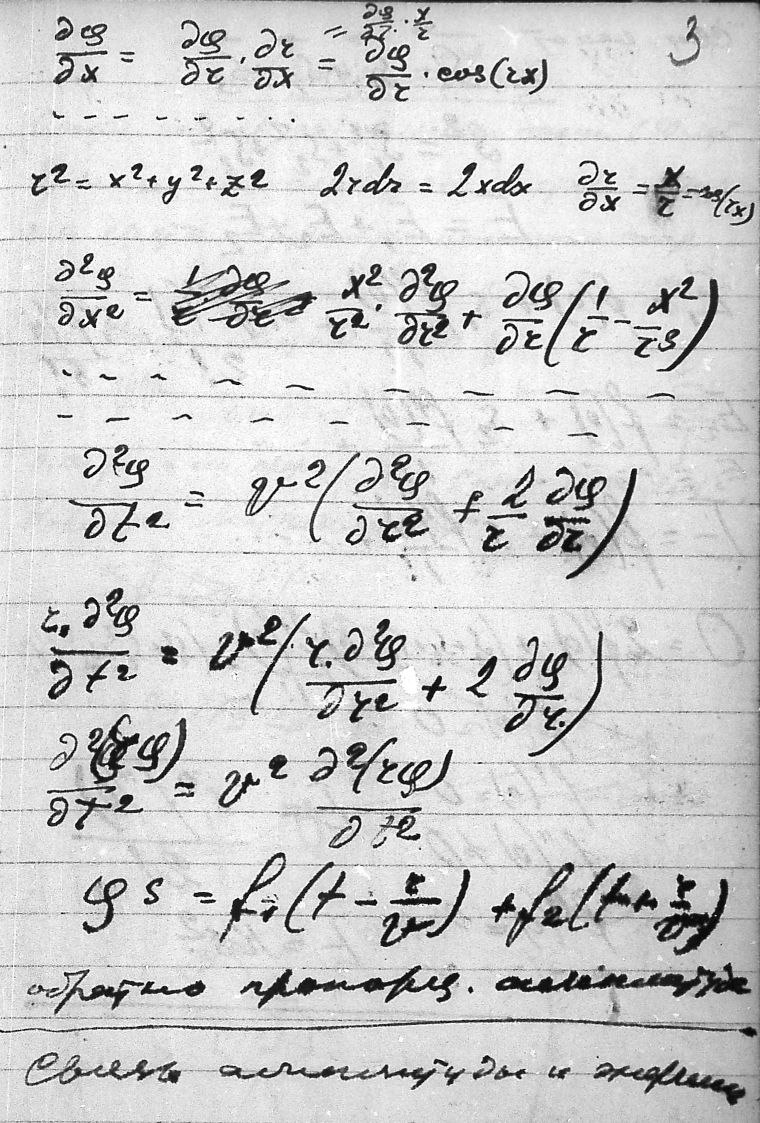 3
= ∂φ/∂r · x/r
∂φ/∂x = ∂φ/∂r · ∂r/∂x = ∂φ/∂r · cos(rx)
r² = x² + y² + z² 2rdr = 2xdx ∂r/∂x = x/r = cos(rx)
∂²φ/∂x² = x²/r² · ∂²φ/∂r² + ∂φ/∂r (1/r − x²/r³)
∂²φ/∂t² = v² (∂²φ/∂r² + 2/r ∂φ/∂r)
r. ∂²φ/∂t² = v² (r. ∂²φ/∂r² + 2 ∂φ/∂r.)
∂²(rφ)/∂t² = v² ∂²(rφ)/∂t²
φ s = f₁(t − r/v) + f₂(t + r/v)
обратно пропорц. амплитуда
Связь амплитуды и энергии